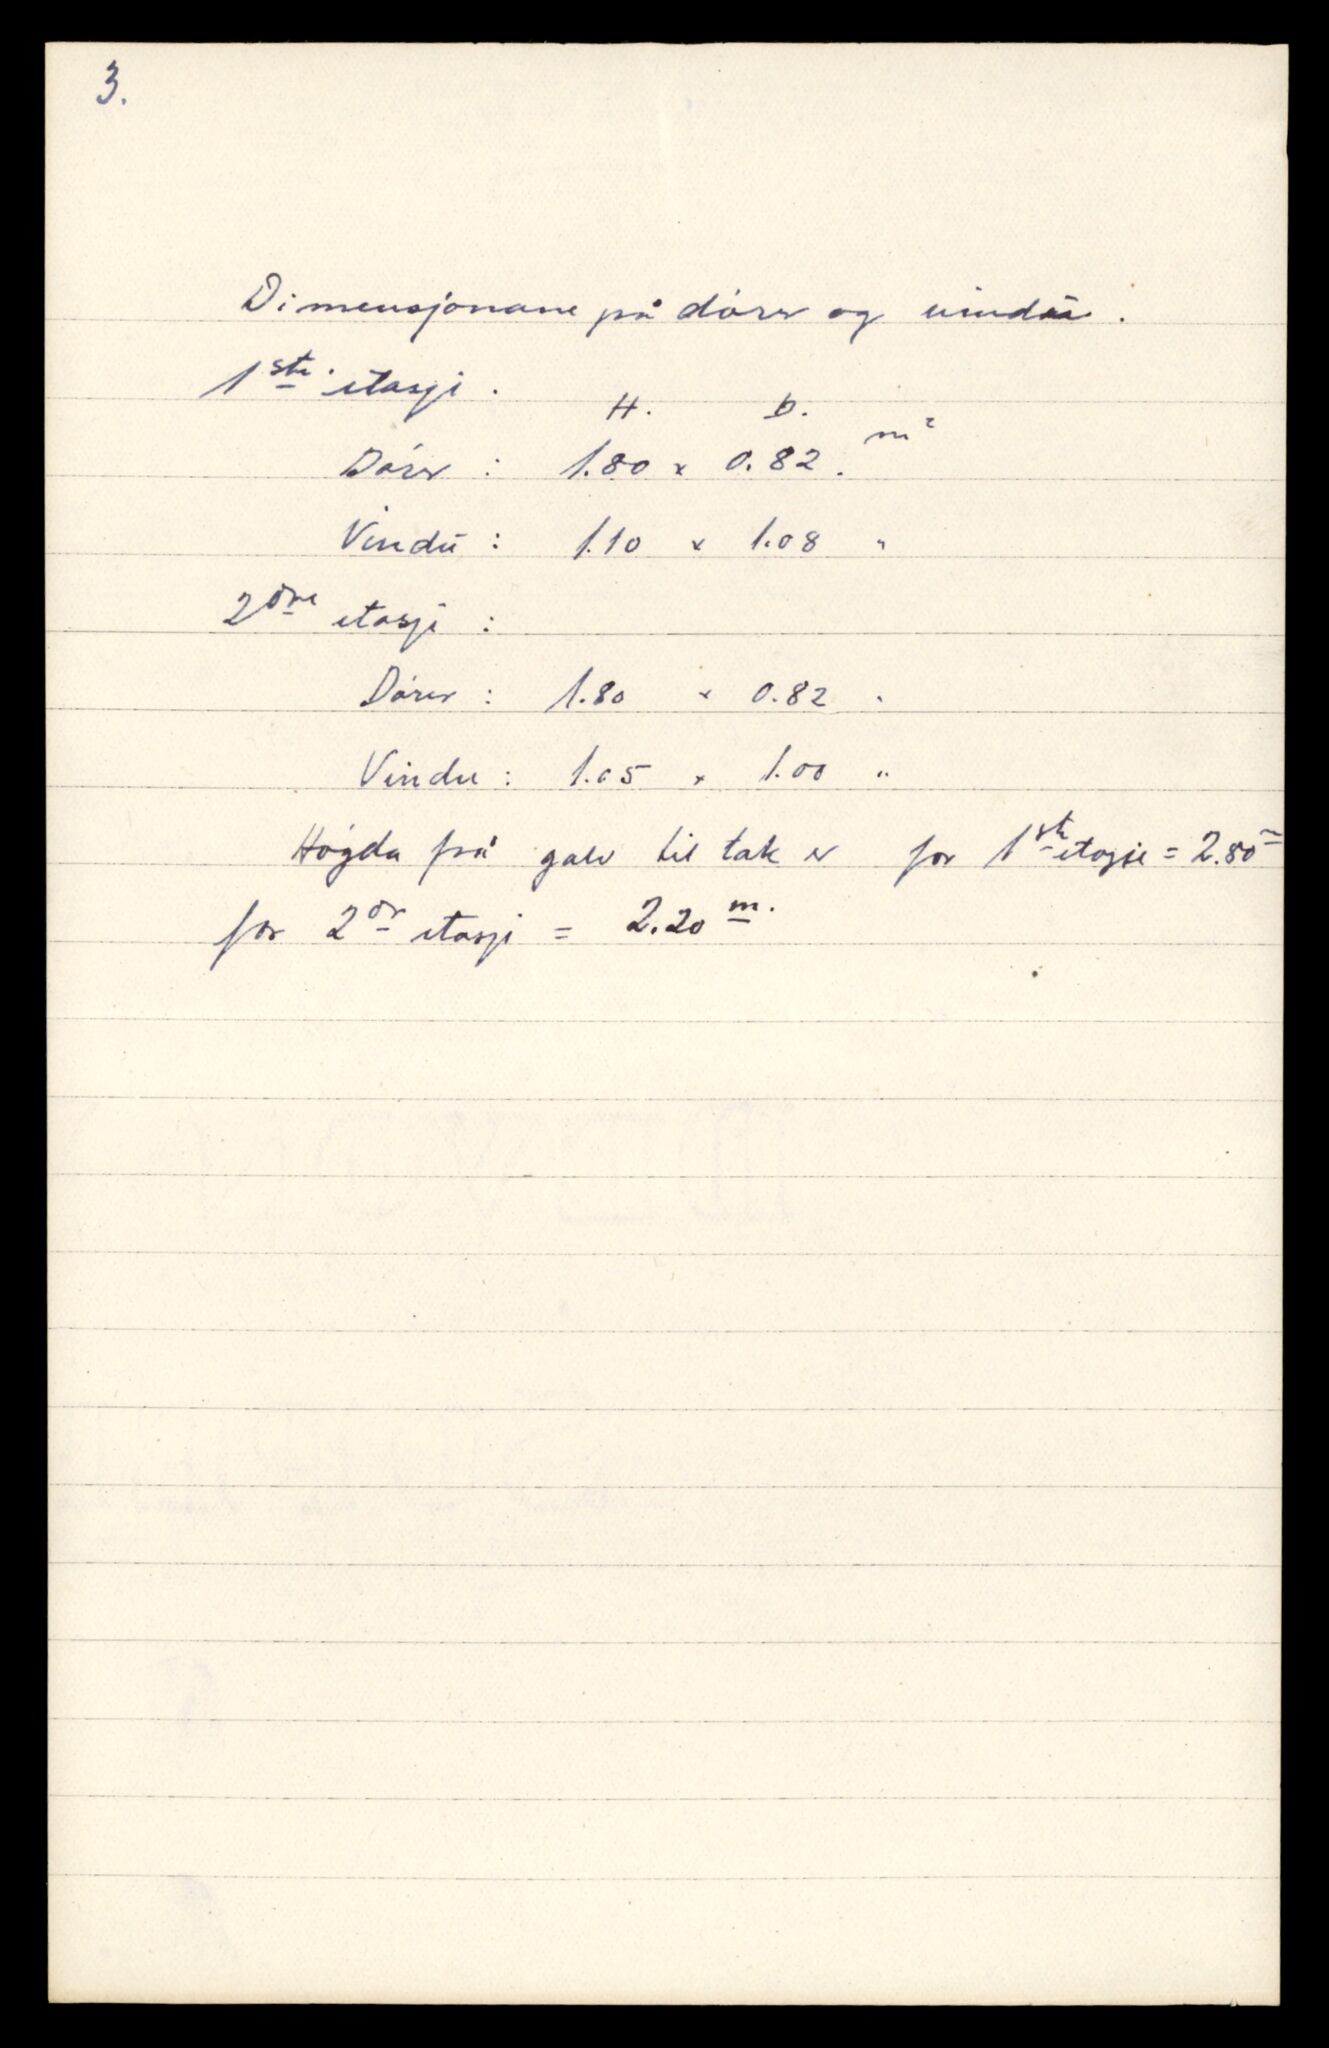 3.
Dimensjonane på dórer og vindŭ.
1ste etasje.
H. b.
Dórer : 1.80 x 0.82. m²
Vindŭ : 1.10 x 1.08 "
2dre etasje :
Dórer : 1.80 x 0.82 "
Vindu : 1.05 x 1.00 "
Hógda frå golv til tak er for 1ste etasje = 2.80 m
for 2dr etasje = 2.20 m.